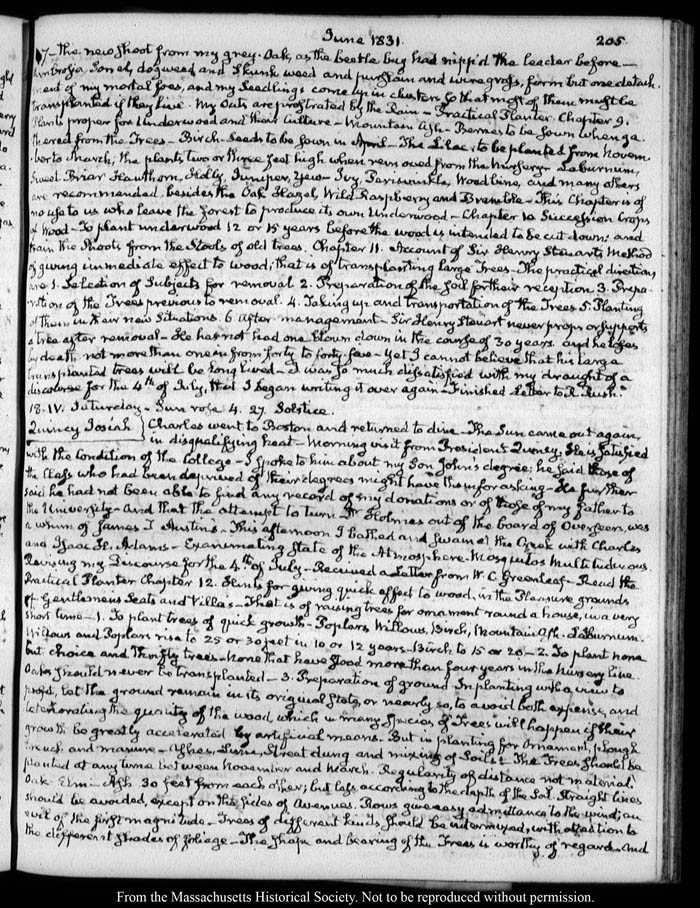 June 1831.
205
17- the new shoot from my grey Oak, as the beetle bug had nipp'd the leader before—
Ambrosia Sonchi, dogweed and Skunk weed and purslain and wiregrass, form but one detach-
ment of my mortal foes, and my Seedlings come up in clusters so that most of them must be
transplanted if they live. My Oats are prostrated by the Rain—Practical Planter. Chapter 9.
Plants proper for Underwood and their Culture—Mountain Ash—Berries to be sown when ga-
thered from the Trees—Birch—Seeds to be sown in April—The Lilac, to be planted from Novem-
ber to March, the plants two or three feet high when removed from the Nursery—Laburnum,
Sweet Briar Hawthorn, Holly, Juniper, Yew—Ivy, Periwinkle, Woodbine, and many others
are recommended, besides the Oak Hazel, Wild Raspberry and Bramble—This Chapter is of
no use to us who leave the Forest to produce its own Underwood—Chapter 10 Succession Crops
of Wood—To plant underwood 12 or 15 years before the wood is intended to be cut down; and
train the Shoots from the Stools of old trees. Chapter 11. Account of Sir Henry Steuart's Method
of giving immediate effect to wood; that is of transplanting large Trees—The practical directions
are 1. Selection of Subjects for removal 2. Preparation of the Soil for their reception. 3. Prepa-
ration of the Trees previous to removal. 4. Taking up and transportation of the Trees 5. Planting
of them in their new Situations. 6. After management—Sir Henry Steuart never props or supports
a tree after removal—He has not had one blown down in the course of 30 years. and he loses
by death not more than one in from forty to forty-five—Yet I cannot believe that his large
transplanted trees will be long lived—I was so much dissatisfied with my draught of a
discourse for the 4th of July, that I began writing it over again—Finished Letter to R. Rush.
18. IV. Saturday—Sun rose 4. 27. Solstice.
Quincy Josiah } Charles went to Boston and returned to dine—The Sun came out again,
in disqualifying heat—Morning visit from President Quincy. He is satisfied
with the Condition of the College—I spoke to him about my Son John's degree; he said those of
the Class who had been deprived of their degrees might have them for asking—He further
said he had not been able to find any record of my donations or of those of my father to
the University—And that the attempt to turn Mr Holmes out of the board of Overseers, was
a whim of James T Austin's. This afternoon I bathed and swam at the Creek with Charles
and Isaac H. Adams—Exanimating State of the Atmosphere—Mosquitos Multitudinous.
Revising my Discourse for the 4th of July—Received a Letter from W. C. Greenleaf—Read the
Practical Planter Chapter 12. Hints for giving quick effect to wood, in the Pleasure grounds
of Gentlemens Seats and Villas—That is of raising trees for ornament round a house, in a very
short time—1. To plant trees of quick growth—Poplars, Willows, Birch, Mountain Ash—Laburnum.
Willows and Poplars rise to 25 or 30 feet in 10 or 12 years—Birch to 15 or 20—2. To plant none
but choice and thrifty trees—None that have stood more than four years in the nursery line.
Oaks should never be transplanted—3. Preparation of ground. In planting with a view to
profit, let the ground remain in its original State, or nearly so, to avoid both expense, and
deteriorating the quality of the wood, which in many species of Trees will happen if their
growth be greatly accelerated by artificial means. But in planting for Ornament, plough
trench and manure—Ashes, Lime, Street dung and mixing of Soils—The Trees should be
planted at any time between November and March. Regularity of distance not material.
Oak—Elm—Ash 30 feet from each other; but less according to the depth of the Soil. Straight lines
should be avoided, except on the sides of Avenues. Rows give easy admittance to the wind; an
evil of the first magnitude—Trees of different kinds should be intermixed, with attention to
the different shades of foliage—The shape and bearing of the Trees is worthy of regard. And
From the Massachusetts Historical Society. Not to be reproduced without permission.